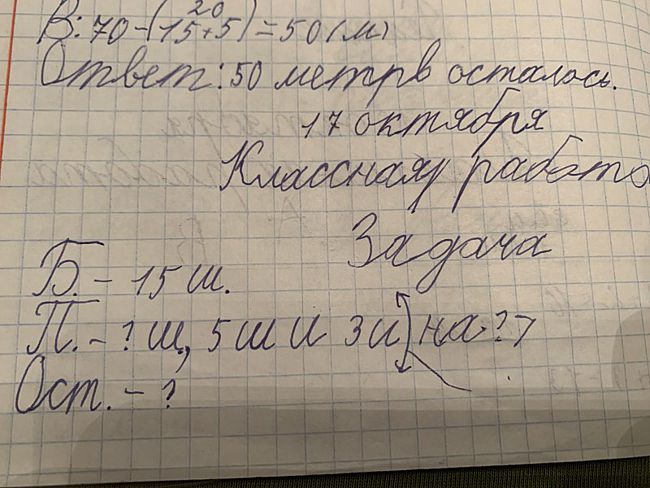 20
В: 70-(15+5)=50(м)
Ответ: 50 метрв осталось.
17 октября
Классная работа
Задача
Б. - 15 ш.
П. - ? ш, 5 ш и 3 ш на ? >
Ост. - ?